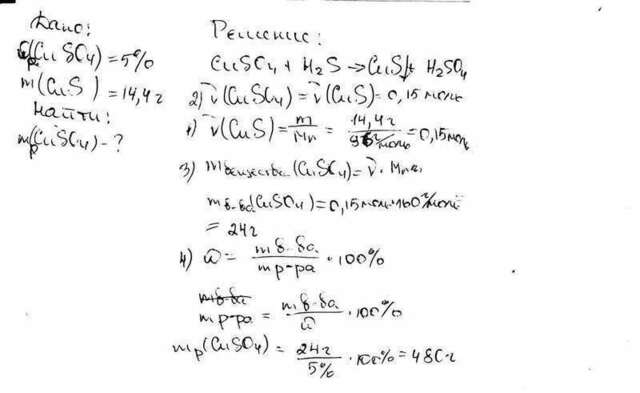 Дано:
ω(CuSO₄) = 5%
р
m(CuS) = 14,4г
Найти:
mр(CuSO₄) - ?
Решение:
CuSO₄ + H₂S → CuS↓ + H₂SO₄
2) ν(CuSO₄) = ν(CuS) = 0,15 моль
1) ν(CuS) = m/Mr = 14,4г / 96г/моль = 0,15моль
3) mвещества (CuSO₄) = ν · Mr
m в-ва(CuSO₄) = 0,15моль·160г/моль
= 24г
4) ω = m в-ва / m р-ра · 100%
m в-ва
m р-ра = m в-ва / ω · 100%
mр(CuSO₄) = 24г / 5% · 100% = 480г